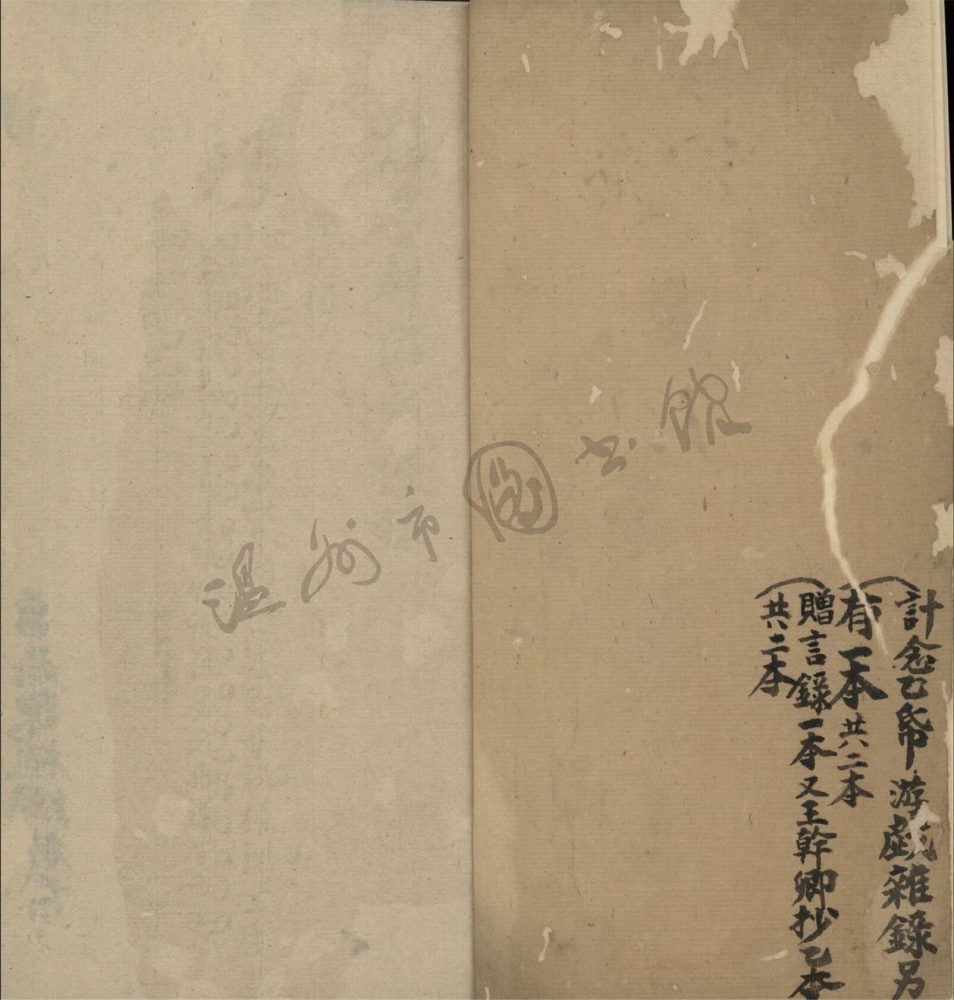 計念乙帋游戲雜錄另
有一本共二本
贈言錄一本又王幹卿抄乙本
共二本
温州市圖书館